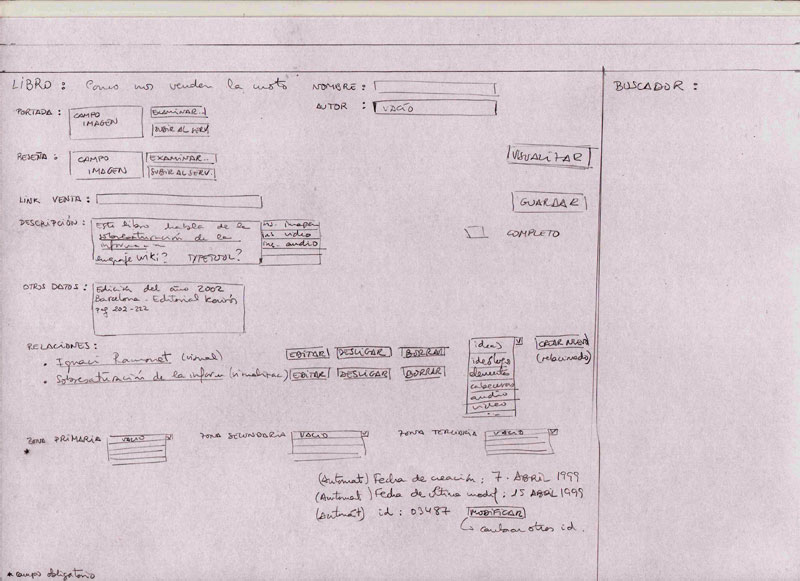 LIBRO : Como nos venden la moto
NOMBRE :
AUTOR : VACÍO
BUSCADOR :
PORTADA : CAMPO IMAGEN
EXAMINAR..
SUBIR AL SERV.
RESEÑA : CAMPO IMAGEN
EXAMINAR..
SUBIR AL SERV.
VISUALIZAR
LINK VENTA :
GUARDAR
DESCRIPCIÓN : Este libro habla de la
sobresaturación de la
ins. imagen
ins video
ins. audio
wiki?
COMPLETO
OTROS DATOS : Edición del año 2002
Barcelona. Editorial Kairós
pag 202-222
RELACIONES :
• Ignaci Ramonet (visual)
EDITAR DESLIGAR BORRAR
• Sobresaturación de la inform (visualizac)
EDITAR DESLIGAR BORRAR
ideas
elementos
audio
video
CREAR NUEVO
(relacionado)
ZONA PRIMARIA VACIO
*
ZONA SECUNDARIA VACIO
ZONA TERCIARIA VACIO
(Automat) Fecha de creación : 7. ABRIL 1999
(Automat) Fecha de última modif : 15 ABRIL 1999
(Automát) id : 03487 MODIFICAR
cambiar otros id.
* campo obligatorio